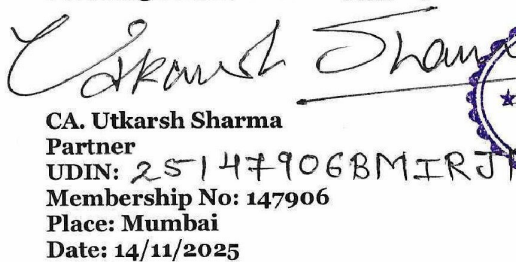 Utkarsh Sharma
CA. Utkarsh Sharma
Partner
UDIN: 25147906BMIRJ
Membership No: 147906
Place: Mumbai
Date: 14/11/2025